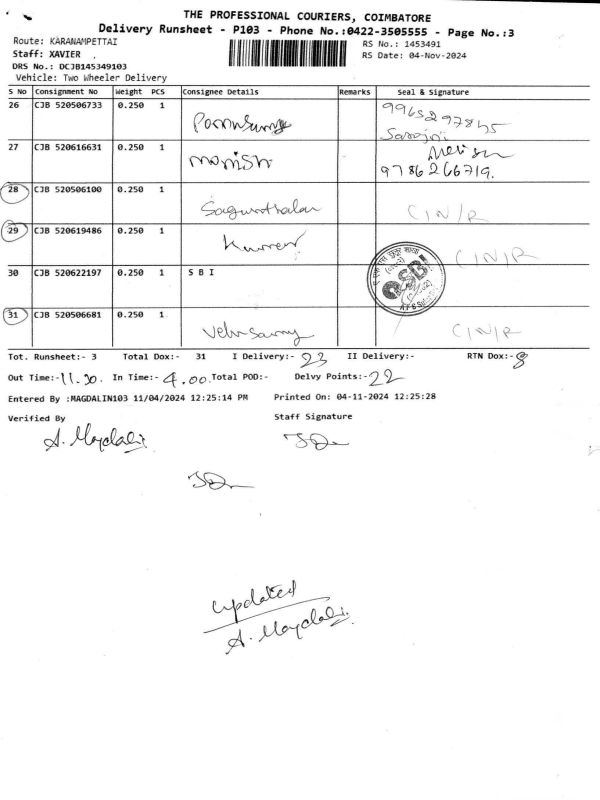 THE PROFESSIONAL COURIERS, COIMBATORE
Delivery Runsheet - P103 - Phone No.:0422-3505555 - Page No.:3
Route: KARANAMPETTAI RS No.: 1453491
Staff: XAVIER . RS Date: 04-Nov-2024
DRS No.: DCJB145349103
Vehicle: Two Wheeler Delivery
S No Consignment No Weight PCS Consignee Details Remarks Seal & Signature
26 CJB 520506733 0.250 1 Ponnusamy 9965297845
Sarojini
27 CJB 520616631 0.250 1 Monish
9786266719.
28 CJB 520506100 0.250 1 Sagunthalau C/N/R
29 CJB 520619486 0.250 1 Kumar C/N/R
30 CJB 520622197 0.250 1 S B I SBI
31 CJB 520506681 0.250 1 Velusamy C/N/R
Tot. Runsheet:- 3 Total Dox:- 31 I Delivery:- 23 II Delivery:- RTN Dox:- 8
Out Time:- 11.30. In Time:- 4.00. Total POD:- Delvy Points:- 22
Entered By :MAGDALIN103 11/04/2024 12:25:14 PM Printed On: 04-11-2024 12:25:28
Verified By Staff Signature
A. Magdalin
updated
A. Magdalin.